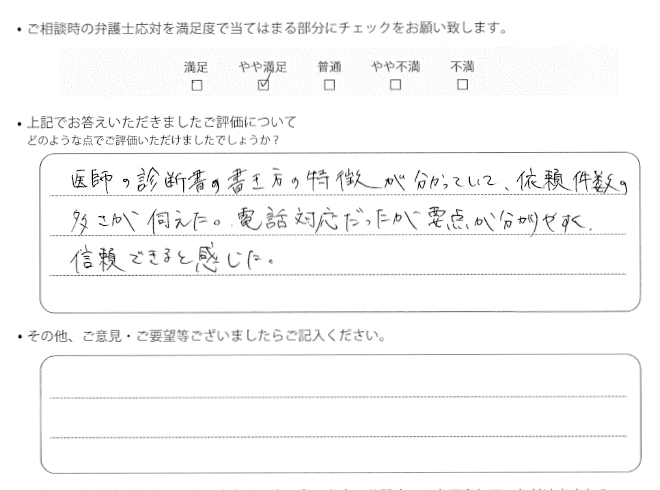 ・ご相談時の弁護士応対を満足度で当てはまる部分にチェックをお願い致します。
満足 やや満足 普通 やや不満 不満
□ ☑ □ □ □
・上記でお答えいただきましたご評価について
どのような点でご評価いただけましたでしょうか？
医師の診断書の書き方の特徴が分かっていて、依頼件数の
多さが伺えた。電話対応だったが要点が分かりやすく、
信頼できると感じた。
・その他、ご意見・ご要望等ございましたらご記入ください。